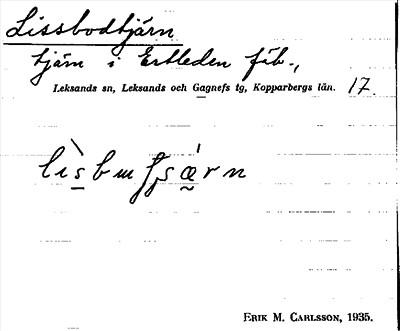 Lissbodtjärn
tjärn i Ertleden fäb.,
Leksands sn, Leksands och Gagnefs tg, Kopparbergs län. 17.
ERIK M. CARLSSON, 1935.